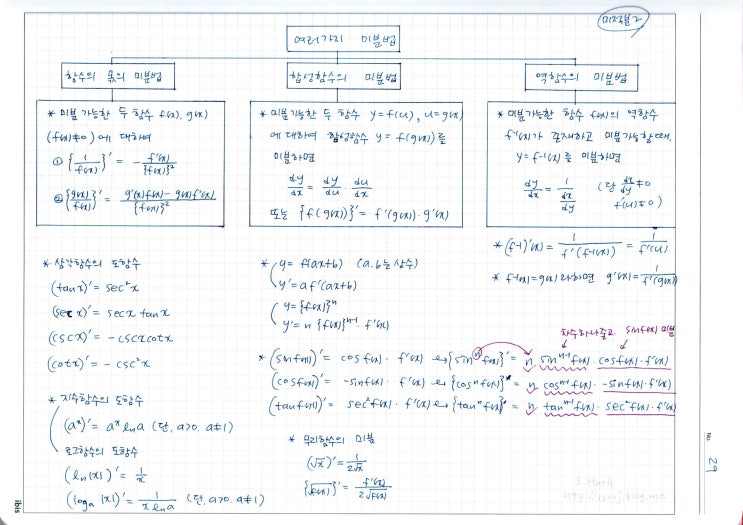 미적분2
여러가지 미분법
함수의 몫의 미분법
* 미분가능한 두 함수 f(x), g(x)
(f(x)≠0) 에 대하여
① {1/f(x)}' = - f'(x)/{f(x)}²
② {g(x)/f(x)}' = g'(x)f(x) - g(x)f'(x)/{f(x)}²
합성함수의 미분법
* 미분가능한 두 함수 y=f(u), u=g(x)
에 대하여 합성함수 y = f(g(x))를
미분하면
dy/dx = dy/du · du/dx
또는 {f(g(x))}' = f'(g(x)) · g'(x)
역함수의 미분법
* 미분가능한 함수 f(x)의 역함수
f⁻¹(x)가 존재하고 미분가능할때,
y=f⁻¹(x)를 미분하면
dy/dx = 1/(dx/dy) (단 dx/dy≠0
f'(y)≠0)
* 삼각함수의 도함수
(tanx)' = sec²x
(secx)' = secx tanx
(cscx)' = -cscxcotx
(cotx)' = -csc²x
* 지수함수의 도함수
(aˣ)' = aˣ lna (단, a>0, a≠1)
로그함수의 도함수
(ln|x|)' = 1/x
(logₐ|x|)' = 1/(x lna) (단, a>0, a≠1)
* y = f(ax+b) (a,b는 상수)
y' = af'(ax+b)
y = {f(x)}ⁿ
y' = n{f(x)}ⁿ⁻¹ · f'(x)
* (f⁻¹)'(x) = 1/f'(f⁻¹(x)) = 1/f'(y)
* f⁻¹(x)=g(x)라하면 g'(x) = 1/f'(g(x))
차수하나줄고 sinf(x) 미분
* (sinf(x))' = cosf(x) · f'(x) ↔ {sinⁿf(x)}' = n sinⁿ⁻¹f(x) · cosf(x) · f'(x)
(cosf(x))' = -sinf(x) · f'(x) ↔ {cosⁿf(x)}' = n cosⁿ⁻¹f(x) · -sinf(x) · f'(x)
(tanf(x))' = sec²f(x) · f'(x) ↔ {tanⁿf(x)}' = n tanⁿ⁻¹f(x) · sec²f(x) · f'(x)
* 무리함수의 미분
(√x)' = 1/2√x
{√f(x)}' = f'(x)/2√f(x)
S.Math
No. 29
ibis